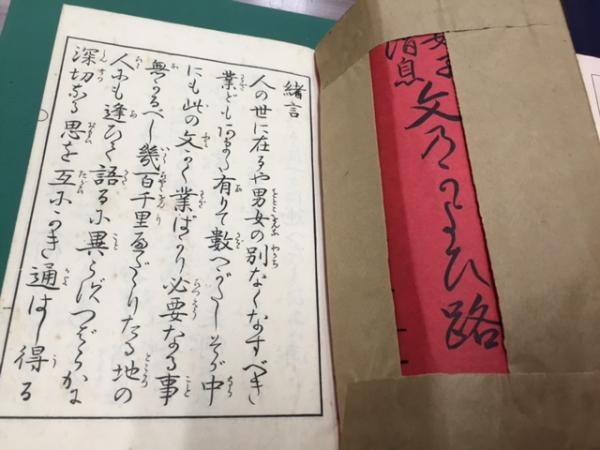 女子
消息
文乃かよひ路
緒言
人の世に在るや男女の別なくなすべき
業ども有りて数へがたしそが中
にも此の文かく業ばかり必要なる事
無かるべし幾百千里へだゝりたる地の
人にも逢ひて語るに異らずつばらかに
深切なる思を互にかき通はし得る